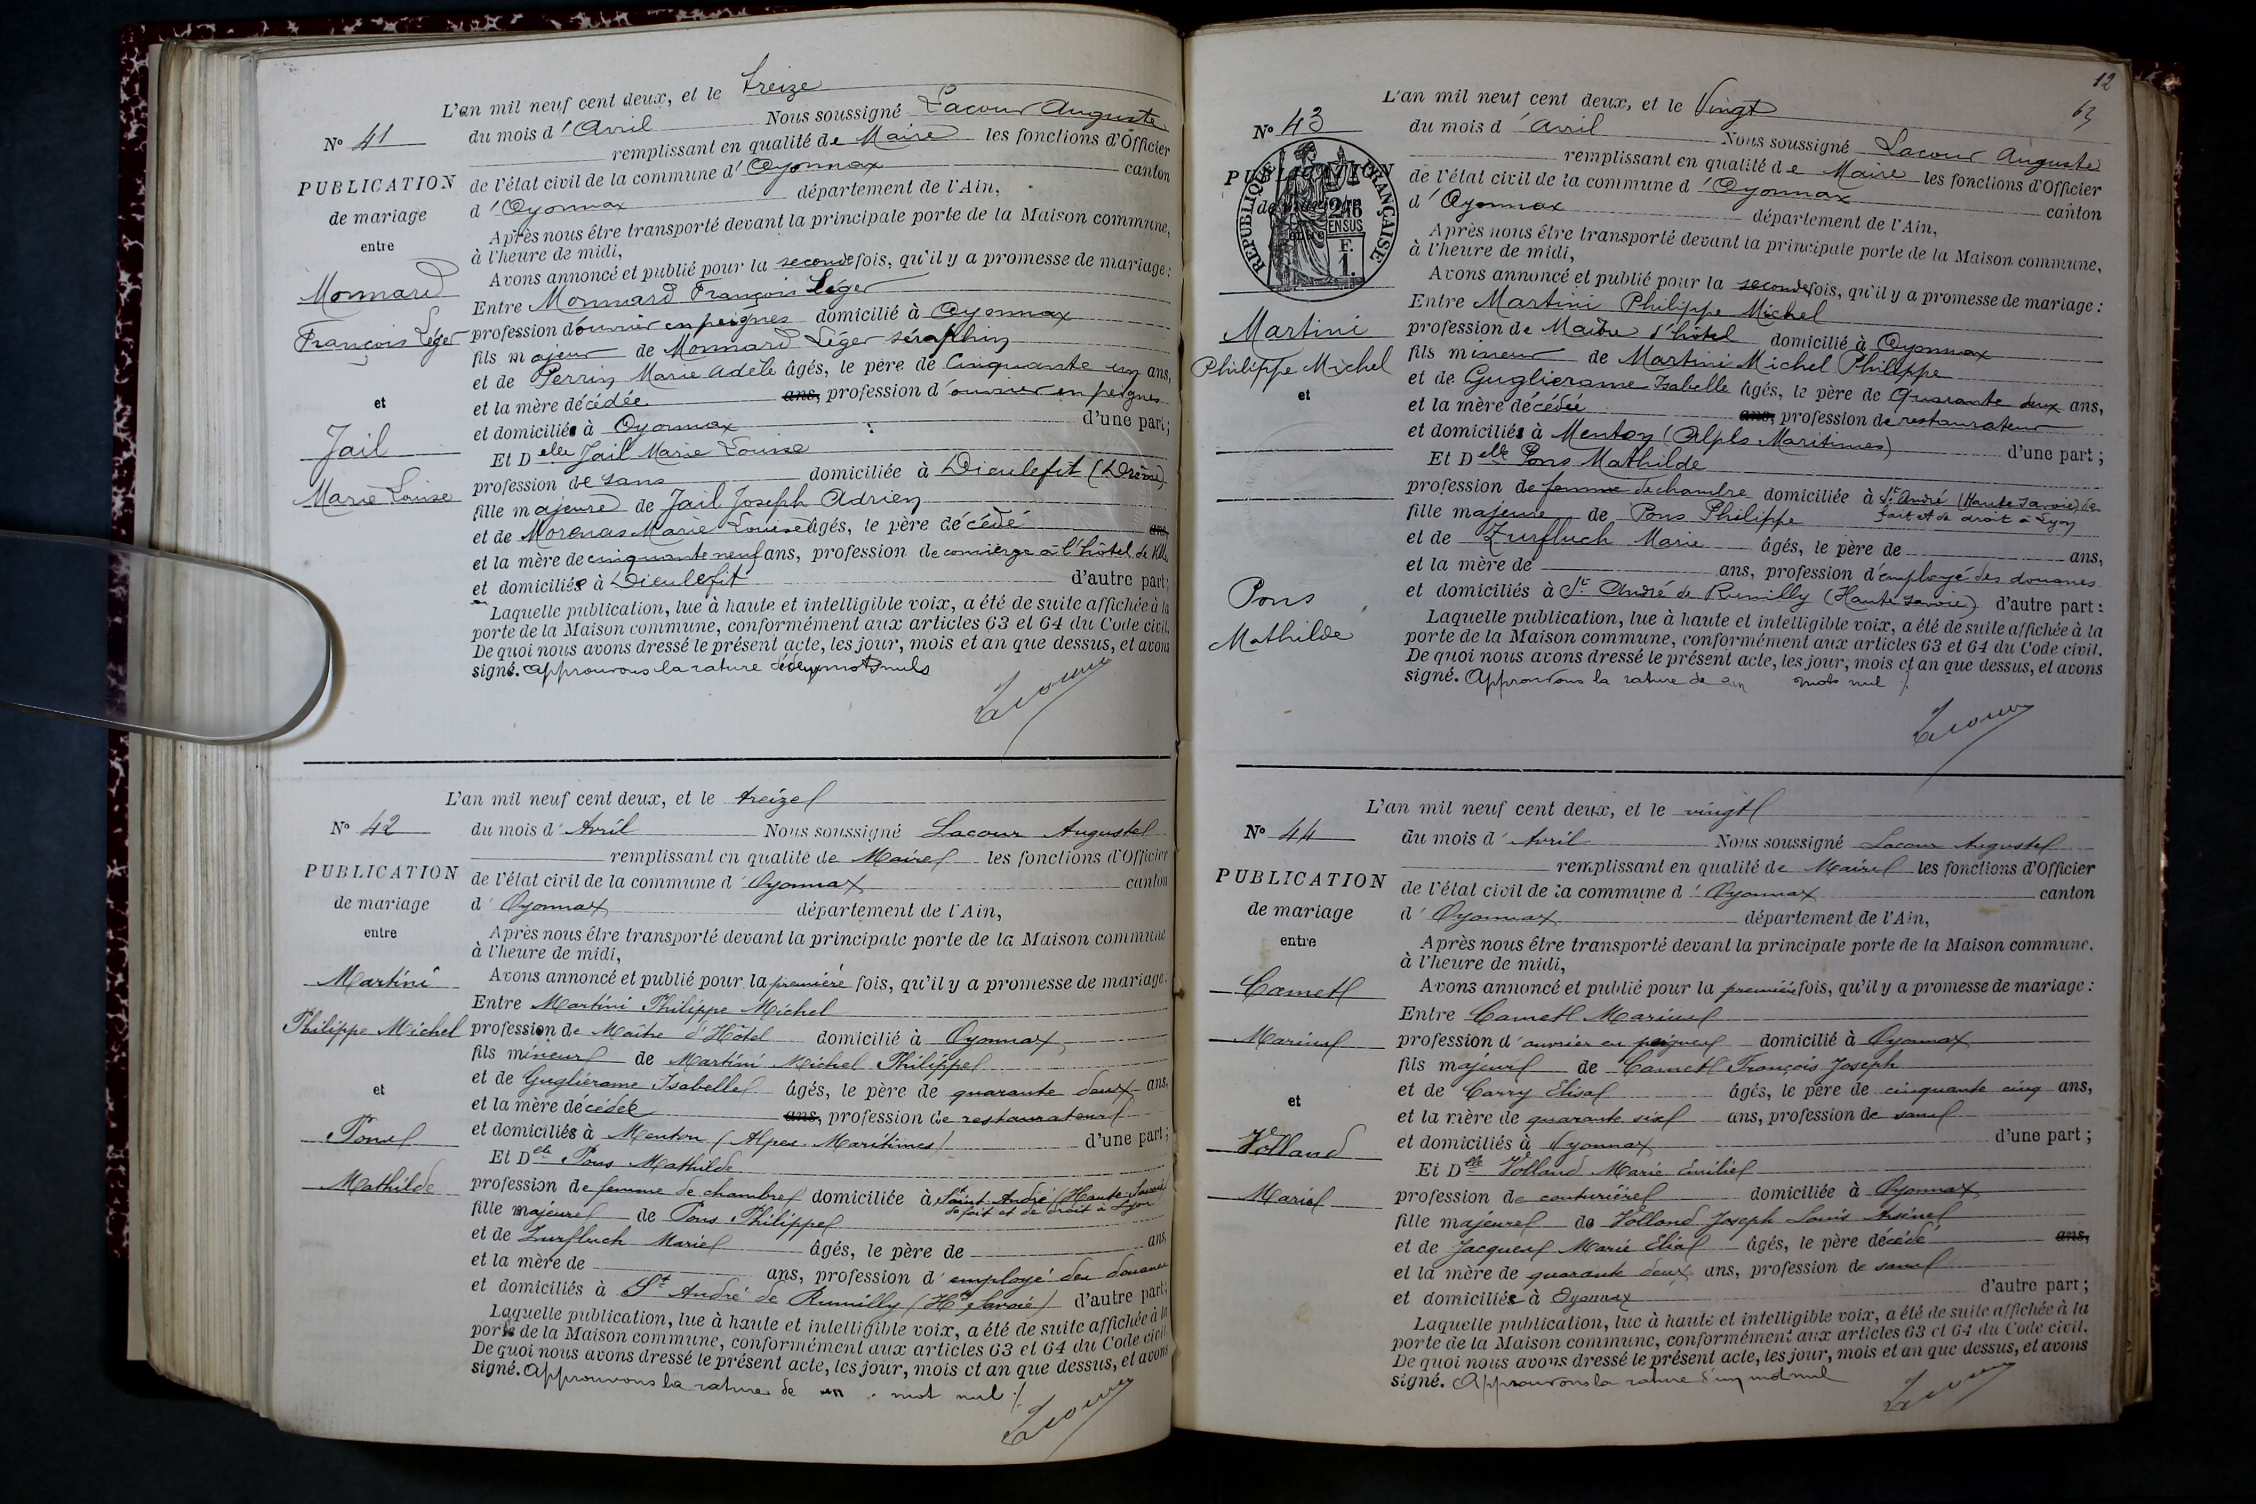 L'an mil neuf cent deux, et le treize
N° 41
du mois d'Avril Nous soussigné Lacour Auguste
remplissant en qualité de Maire les fonctions d'Officier
PUBLICATION
de l'état civil de la commune d'Oyonnax canton
de mariage
d'Oyonnax département de l'Ain,
entre
Après nous être transporté devant la principale porte de la Maison commune,
à l'heure de midi,
Avons annoncé et publié pour la seconde fois, qu'il y a promesse de mariage :
Monnard
Entre Monnard François Léger
François Léger
profession d'ouvrier en peignes domicilié à Oyonnax
fils majeur de Monnard Léger séraphin
et de Perrin Marie Adèle âgés, le père de Cinquante un ans,
et
et la mère décédée ans, profession d'ouvrier en peignes
et domiciliés à Oyonnax d'une part ;
Jail
Et Delle Jail Marie Louise
Marie Louise
profession de sans domiciliée à Dieulefit (Drôme)
fille majeure de Jail Joseph Adrien
et de Morenas Marie Louise âgés, le père décédé ans,
et la mère de cinquante neuf ans, profession de concierge à l'hôtel de Ville
et domiciliés à Dieulefit d'autre part ;
Laquelle publication, lue à haute et intelligible voix, a été de suite affichée à la
porte de la Maison commune, conformément aux articles 63 et 64 du Code civil.
De quoi nous avons dressé le présent acte, les jour, mois et an que dessus, et avons
signé. Approuvons la rature de deux mots nuls
Lacour
L'an mil neuf cent deux, et le treize
N° 42
du mois d'Avril Nous soussigné Lacour Auguste
remplissant en qualité de Maire les fonctions d'Officier
PUBLICATION
de l'état civil de la commune d'Oyonnax canton
de mariage
d'Oyonnax département de l'Ain,
entre
Après nous être transporté devant la principale porte de la Maison commune
à l'heure de midi,
Martini
Avons annoncé et publié pour la première fois, qu'il y a promesse de mariage :
Entre Martini Philippe Michel
Philippe Michel
profession de Maître d'Hôtel domicilié à Oyonnax
fils mineur de Martini Michel Philippe
et
et de Guglierame Isabelle âgés, le père de quarante deux ans,
et la mère décédée ans, profession de restaurateur
Pons
et domiciliés à Menton (Alpes-Maritimes) d'une part ;
Et Delle Pons Mathilde
Mathilde
profession de femme de chambre domiciliée à Saint André (Haute Savoie)
de fait et de droit à Lyon
fille majeure de Pons Philippe
et de Zurfluch Marie âgés, le père de ans,
et la mère de ans, profession d'employé des douanes
et domiciliés à St André de Rumilly (Hte Savoie) d'autre part ;
Laquelle publication, lue à haute et intelligible voix, a été de suite affichée à la
porte de la Maison commune, conformément aux articles 63 et 64 du Code civil
De quoi nous avons dressé le présent acte, les jour, mois et an que dessus, et avons
signé. Approuvons la rature de un mot nul ./.
Lacour
12
63
L'an mil neuf cent deux, et le Vingt
N° 43
du mois d'avril Nous soussigné Lacour Auguste
remplissant en qualité de Maire les fonctions d'Officier
PUBLICATION
de l'état civil de la commune d'Oyonnax canton
de mariage
d'Oyonnax département de l'Ain,
entre
REPUBLIQUE FRANÇAISE
2/10 EN SUS
F. 1.
Après nous être transporté devant la principale porte de la Maison commune,
à l'heure de midi,
Avons annoncé et publié pour la seconde fois, qu'il y a promesse de mariage :
Entre Martini Philippe Michel
Martini
profession de Maître d'hôtel domicilié à Oyonnax
Philippe Michel
fils mineur de Martini Michel Philippe
et
et de Guglierame Isabelle âgés, le père de Quarante deux ans,
et la mère décédée ans, profession de restaurateur
et domiciliés à Menton (Alpes Maritimes) d'une part ;
Et Delle Pons Mathilde
profession de femme de chambre domiciliée à St André (Haute Savoie) de
fait et de droit à Lyon
fille majeure de Pons Philippe
et de Zurfluch Marie âgés, le père de ans,
et la mère de ans, profession d'employé des douanes
Pons
et domiciliés à St André de Rumilly (Haute Savoie) d'autre part :
Mathilde
Laquelle publication, lue à haute et intelligible voix, a été de suite affichée à la
porte de la Maison commune, conformément aux articles 63 et 64 du Code civil.
De quoi nous avons dressé le présent acte, les jour, mois et an que dessus, et avons
signé. Approuvons la rature de un mots nul ./.
Lacour
L'an mil neuf cent deux, et le vingt
N° 44
du mois d'Avril Nous soussigné Lacour Auguste
remplissant en qualité de Maire les fonctions d'Officier
PUBLICATION
de l'état civil de la commune d'Oyonnax canton
de mariage
d'Oyonnax département de l'Ain,
entre
Après nous être transporté devant la principale porte de la Maison commune.
à l'heure de midi,
Carnet
Avons annoncé et publié pour la première fois, qu'il y a promesse de mariage :
Entre Carnet Marius
Marius
profession d'ouvrier en peignes domicilié à Oyonnax
fils majeur de Carnet François Joseph
et
et de Carry Elisa âgés, le père de cinquante cinq ans,
et la mère de quarante six ans, profession de sans
Volland
et domiciliés à Oyonnax d'une part ;
Et Delle Volland Marie Emilie
Marie
profession de couturière domiciliée à Oyonnax
fille majeure de Volland Joseph Louis Arsène
et de Jacques Marie Elia âgés, le père décédé ans,
et la mère de quarante deux ans, profession de sans
et domiciliés à Oyonnax d'autre part ;
Laquelle publication, lue à haute et intelligible voix, a été de suite affichée à la
porte de la Maison commune, conformément aux articles 63 et 64 du Code civil.
De quoi nous avons dressé le présent acte, les jour, mois et an que dessus, et avons
signé. Approuvons la rature d'un mot nul
Lacour